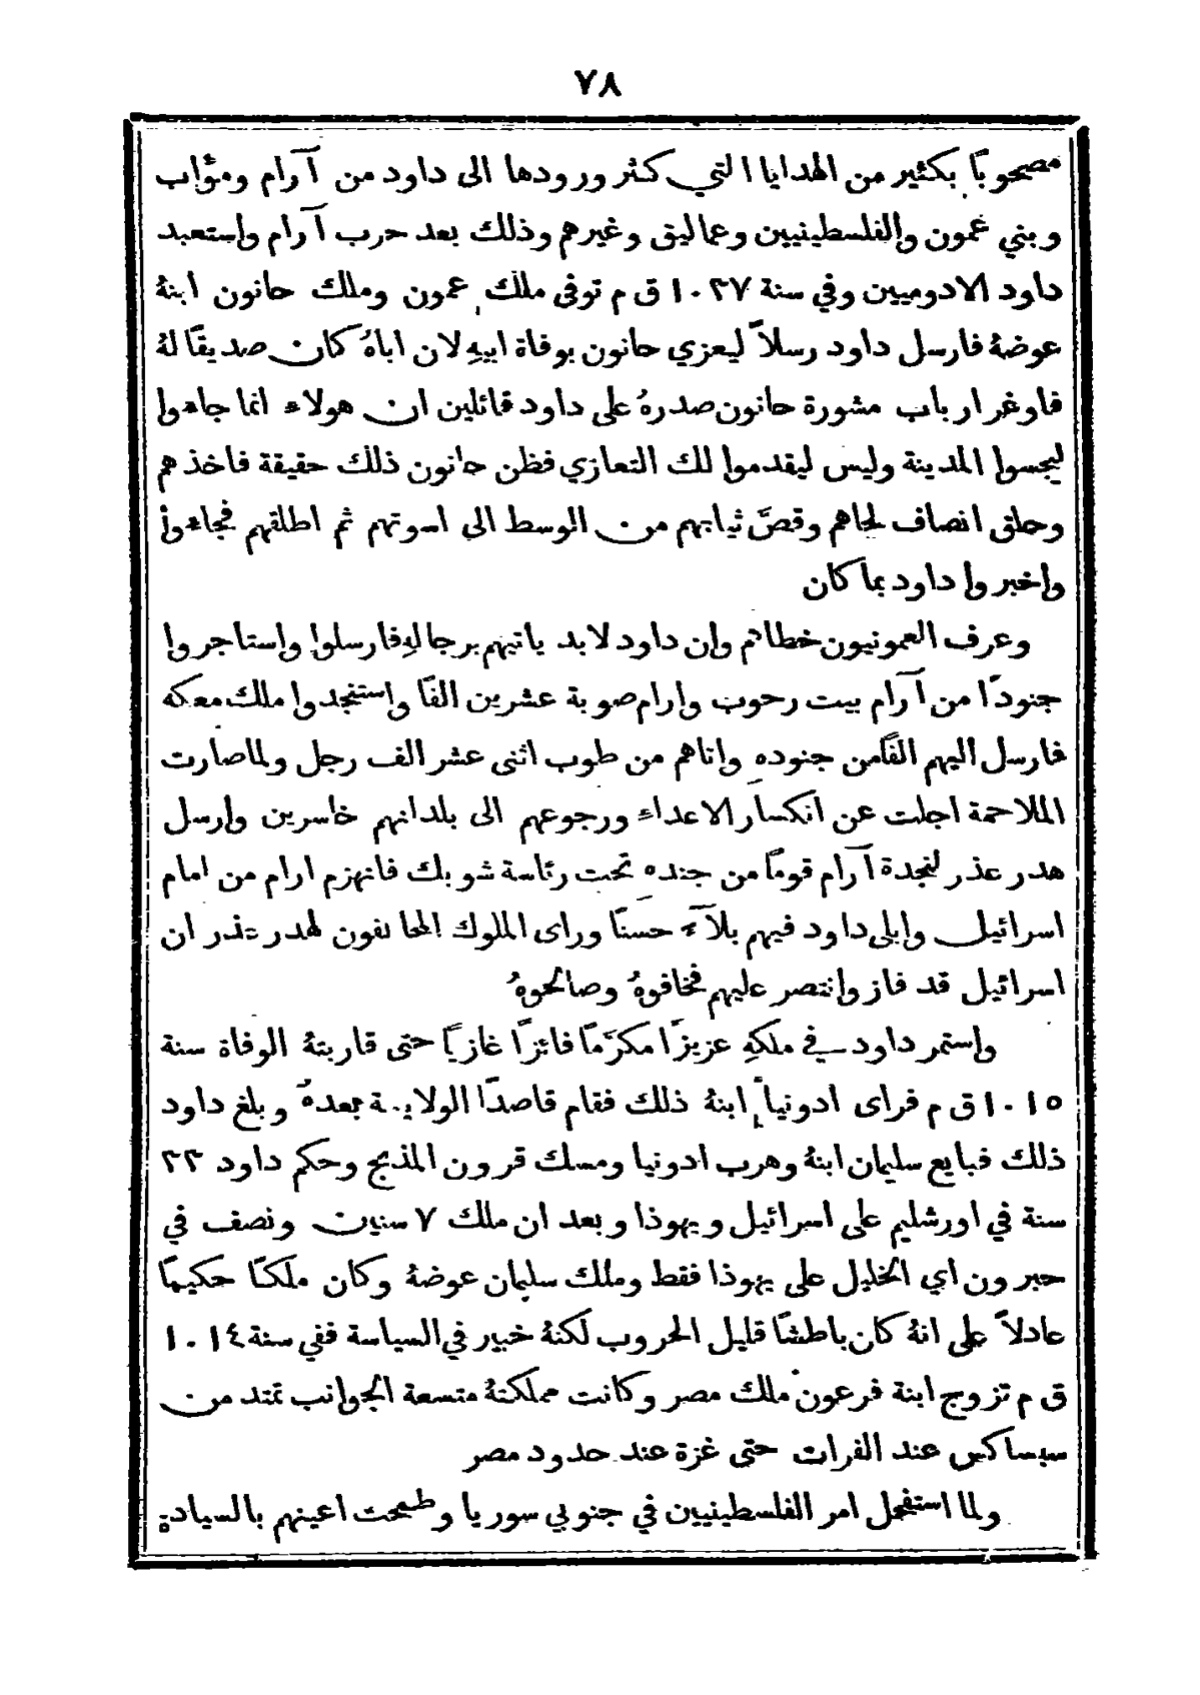 ٧٨
مصحوبًا بكثير من الهدايا التي كثر ورودها الى داود من آرام ومؤاب
وبني عمون والفلسطينيين وعماليق وغيرهم وذلك بعد حرب آرام واستعبد
داود الادوميين وفي سنة ١٠٣٧ ق م توفي ملك عمون وملك حانون ابنهُ
عوضهُ فارسل داود رسلاً ليعزي حانون بوفاة ابيهِ لان اباهُ كان صديقًا لهُ
فاوغر ارباب مشورة حانون صدرهُ على داود قائلين ان هولاء انما جاءوا
ليجسوا المدينة وليس ليقدموا لك التعازي فظن حانون ذلك حقيقة فاخذهم
وحلق انصاف لحاهم وقصَّ ثيابهم من الوسط الى اسوتهم ثم اطلقهم فجاءوا
واخبروا داود بما كان
وعرف العمونيون خطاهم وان داود لا بد ياتيهم برجالهِ فارسلوا واستاجروا
جنودًا من آرام بيت رحوب وارام صوبة عشرين الفًا واستنجدوا ملك معكه
فارسل اليهم الفًا من جنوده واتاهم من طوب اثنى عشر الف رجل ولما صارت
الملاحمة اجلت عن انكسار الاعداء ورجوعهم الى بلدانهم خاسرين وارسل
هدر عذر لنجدة آرام قومًا من جنده تحت رئاسة شوبك فانهزم ارام من امام
اسرائيل وابلى داود فيهم بلآء حسنًا وراى الملوك المحالفون لهدر عذر ان
اسرائيل قد فاز وانتصر عليهم فخافوهُ وصالحوهُ
واستمر داود في ملكهِ عزيزًا مكرّمًا فائزًا غازيًا حتى قاربتهُ الوفاة سنة
١٠١٥ ق م فراى ادونيا ابنهُ ذلك فقام قاصدًا الولاية بعدهُ وبلغ داود
ذلك فبايع سليمان ابنهُ وهرب ادونيا ومسك قرون المذبح وحكم داود ٣٣
سنة في اورشليم على اسرائيل ويهوذا وبعد ان ملك ٧ سنين ونصف في
حبرون اي الخليل على يهوذا فقط وملك سليمان عوضهُ وكان ملكًا حكيمًا
عادلاً على انهُ كان باطشًا قليل الحروب لكنهُ خبير في السياسة ففي سنة ١٠١٤
ق م تزوج ابنة فرعون ملك مصر وكانت مملكتهُ متسعة الجوانب تمتد من
سبساكس عند الفرات حتى غزة عند حدود مصر
ولما استفحل امر الفلسطينيين في جنوبي سوريا وطمحت اعينهم بالسيادة